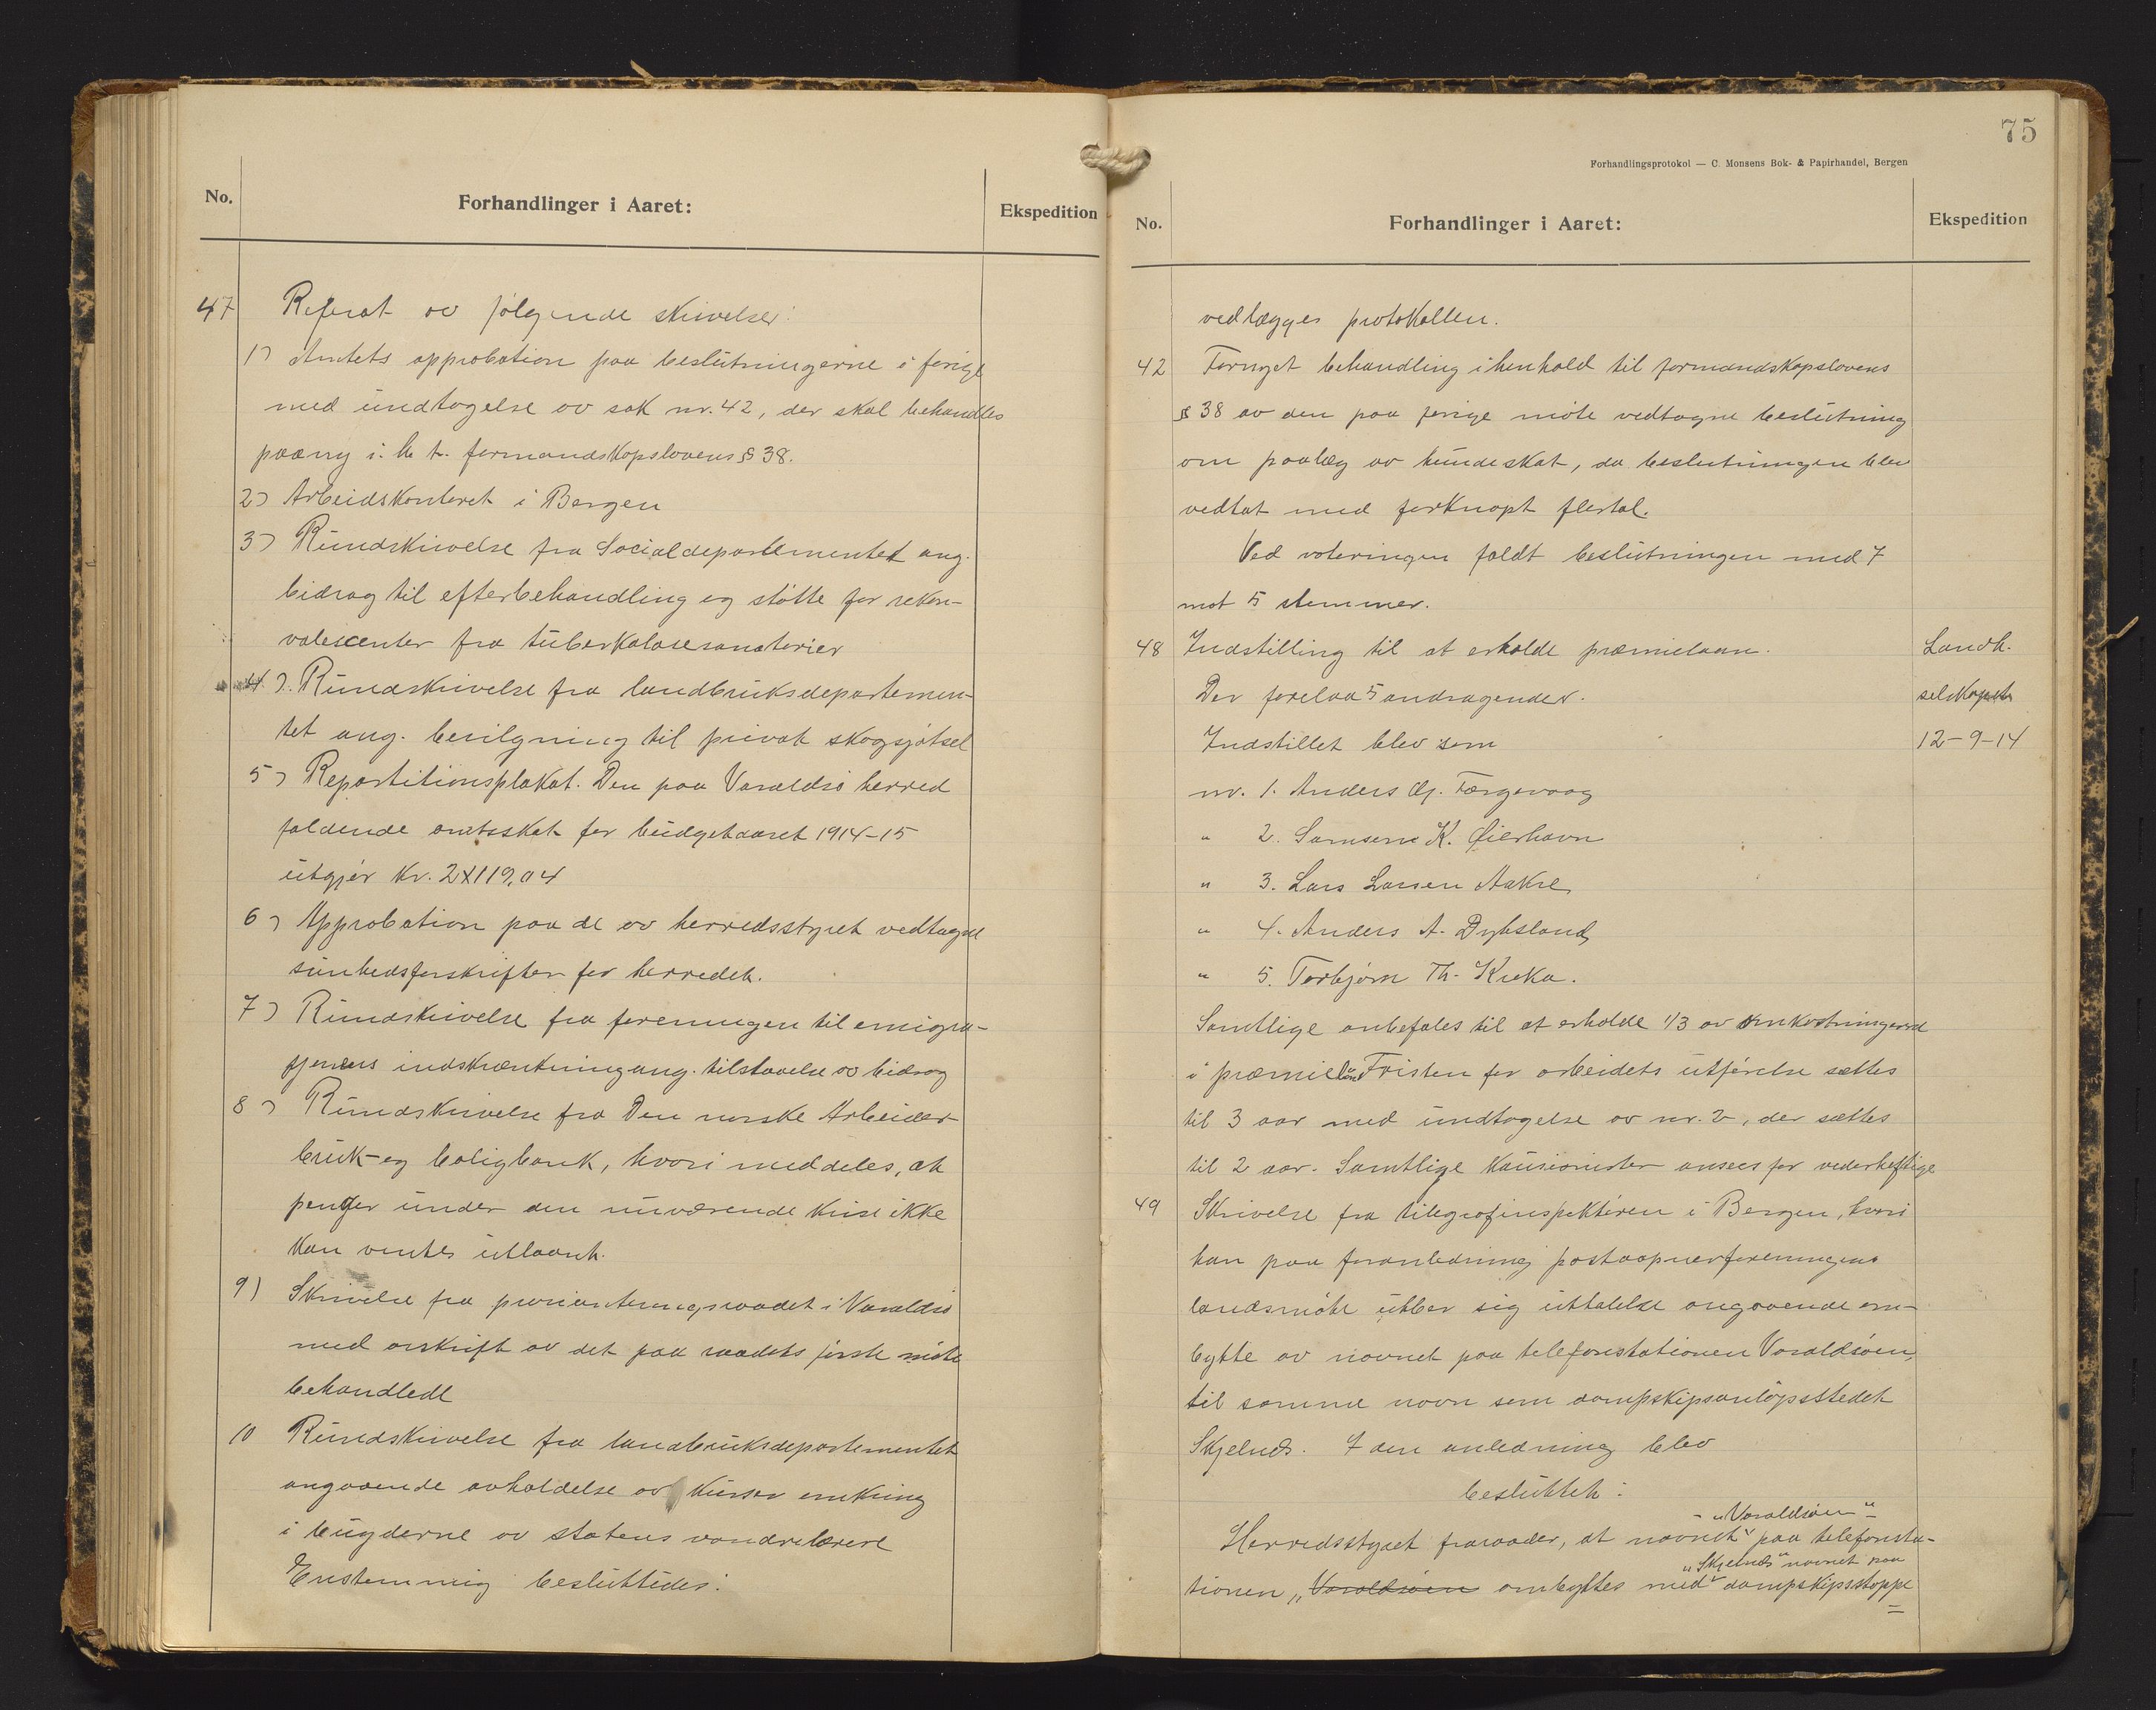 No.
Forhandlinger i Aaret:
Ekspedition
47 Referat av følgende skrivelser:
1) Amtets approbation paa beslutningerne i forige
med undtagelse av sak nr. 42, der skal behandles
paany i. h. t. formandskapslovens § 38.
2) Arbeidskontoret i Bergen
3) Rundskrivelse fra Socialdepartementet ang.
bidrag til efterbehandling og støtte for rekon-
valescenter fra tuberkulosesanatorier
4). Rundskrivelse fra landbruksdepartemen-
tet ang. bevilgning til privat skogsjøtsel
5) Repartitionsplakat. Den paa Varaldsø herred
faldende amtsskat for budgetaaret 1914-15
utgjør kr. 2119,04
6) Approbation paa de av herredsstyret vedtagne
sunhedsforskrifter for herredet.
7) Rundskrivelse fra foreningen til emigra-
sjonens indskrænkning ang. tilstaaelse av bidrag
8) Rundskrivelse fra Den norske Arbeider-
bruk- og boligbank, hvori meddeles, at
penger under den nuværende krise ikke
kan ventes utlaant.
9) Skrivelse fra provianteringsraadet i Varaldsø
med avskrift av det paa raadets første møte
behandlede
10 Rundskrivelse fra landbruksdepartementet
angaaende avholdelse av kurser omkring
i bygderne av statens vandrelærere
Enstemmig besluttedes:
75
Forhandlingsprotokol — C. Monsens Bok- & Papirhandel, Bergen
No.
Forhandlinger i Aaret:
Ekspedition
vedlægges protokollen.
42 Fornyet behandling i henhold til formandskapslovens
§ 38 av den paa forige møte vedtagne beslutning
om paalæg av hundeskat, da beslutningen blev
vedtat med forknapt flertal.
Ved voteringen faldt beslutningen med 7
mot 5 stemmer.
48 Indstilling til at erholde præmielaan. Landh.
Der forelaa 5 andragender. selskapet
Indstillet blev som 12-9-14
nr. 1. Anders Færgevaag
" 2. Samson K. Øierhavn
" 3. Lars Larsen Aakre
" 4. Anders A. Dybsland
" 5. Torbjørn Th. Kreka.
Samtlige anbefales til at erholde 1/3 av omkostningerne
i præmielaan Fristen for arbeidets utførelse sættes
til 3 aar med undtagelse av nr. 2, der sættes
til 2 aar. Samtlige kausionister ansees for vederheftige
49 Skrivelse fra telegrafinspektøren i Bergen, hvori
han paa foranledning postaapnerforeningens
landsmøte utber sig uttalelse angaaende om-
bytte av navnet paa telefonstationen Varaldsøen,
til samme navn som dampskipsanløpsstedet
Skjelnes. I den anledning blev
besluttet:
- "Varaldsøen" -
Herredsstyret fraraader, at navnet paa telefonsta-
"Skjelnes" navnet paa
tionen "Varaldsøen ombyttes med dampskipsstoppe
=